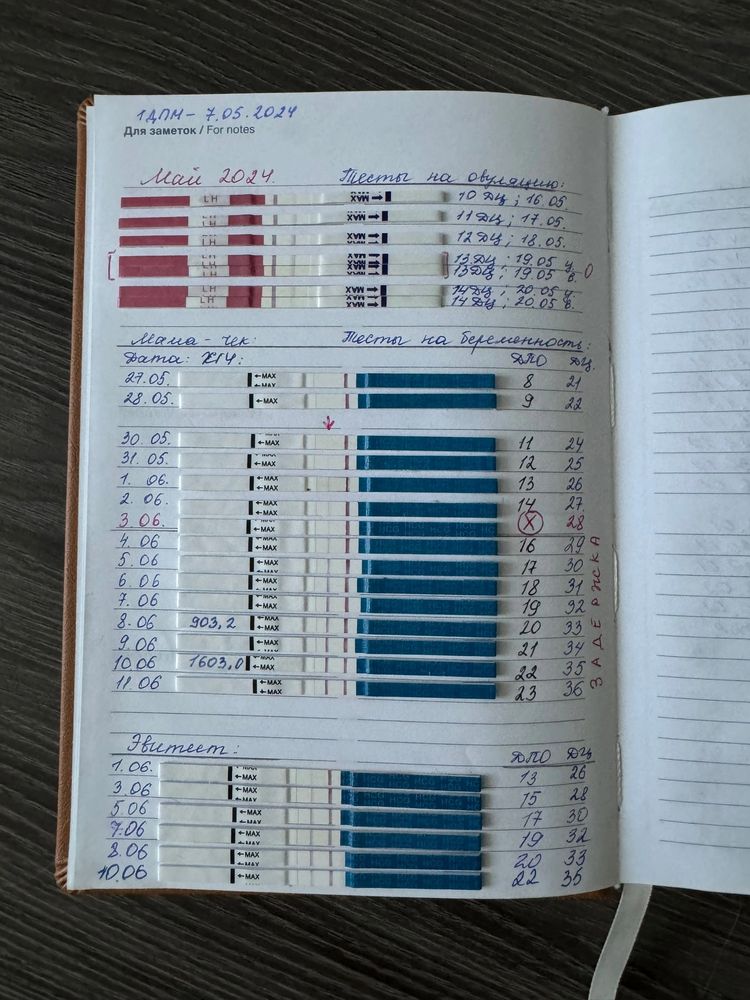 1ДПМ - 7.05.2024
Для заметок / For notes
Май 2024. Тесты на овуляцию:
LH MAX 10 ДЦ ; 16.05
LH MAX 11 ДЦ ; 17.05.
LH MAX 12 ДЦ ; 18.05.
LH MAX 13 ДЦ ; 19.05 у. О
LH MAX 13 ДЦ ; 19.05 в.
LH MAX 14 ДЦ ; 20.05 у.
LH MAX 14 ДЦ ; 20.05 в.
Мама-чек: Тесты на беременность:
Дата: ХГЧ: ДПО ДЦ
27.05. ←MAX 8 21
28.05. ←MAX 9 22
30.05. ←MAX 11 24
31.05. ←MAX 12 25
1. 06. ←MAX 13 26
2. 06. ←MAX 14 27.
3.06. ←MAX X 28
4.06 ←MAX 16 29
5.06 ←MAX 17 30
6.06 ←MAX 18 31
7.06 ←MAX 19 32
8.06 903,2 ←MAX 20 33
9.06 ←MAX 21 34
10.06 1603,0 ←MAX 22 35
11.06 ←MAX 23 36
ЗАДЕРЖКА
Эвитест: ДПО ДЦ
1.06. ←MAX 13 26
3.06 ←MAX 15 28
5.06 ←MAX 17 30
7.06 ←MAX 19 32
8.06 ←MAX 20 33
10.06 ←MAX 22 35